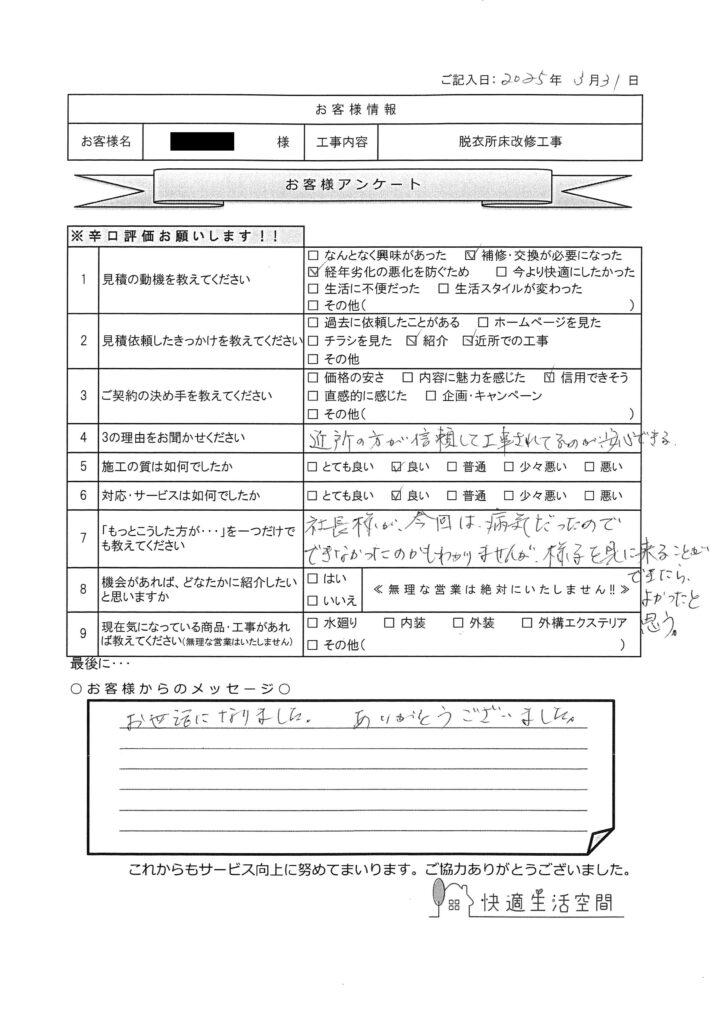 ご記入日：2025年 3月31日
お客様情報
お客様名 様 工事内容 脱衣所床改修工事
お客様アンケート
※辛口評価お願いします！！
1 見積の動機を教えてください
□ なんとなく興味があった ☑ 補修・交換が必要になった
☑ 経年劣化の悪化を防ぐため □ 今より快適にしたかった
□ 生活に不便だった □ 生活スタイルが変わった
□ その他( )
2 見積依頼したきっかけを教えてください
□ 過去に依頼したことがある □ ホームページを見た
□ チラシを見た ☑ 紹介 ☑ 近所での工事
□ その他
3 ご契約の決め手を教えてください
□ 価格の安さ □ 内容に魅力を感じた ☑ 信用できそう
□ 直感的に感じた □ 企画・キャンペーン
□ その他( )
4 3の理由をお聞かせください
近所の方が信頼して工事されてるのが安心できる.
5 施工の質は如何でしたか □ とても良い ☑ 良い □ 普通 □ 少々悪い □ 悪い
6 対応・サービスは如何でしたか □ とても良い ☑ 良い □ 普通 □ 少々悪い □ 悪い
7 「もっとこうした方が・・・」を一つだけで
も教えてください
社長様が、今回は、病気だったので
できなかったのかもわかりませんが、様子を見に来ることが
できたら、
よかったと
思う。
8 機会があれば、どなたかに紹介したい
と思いますか
□ はい
□ いいえ
≪無理な営業は絶対にいたしません!!≫
9 現在気になっている商品・工事があれ
ば教えてください(無理な営業はいたしません)
□ 水廻り □ 内装 □ 外装 □ 外構エクステリア
□ その他( )
最後に・・・
○お客様からのメッセージ○
お世話になりました。 ありがとうございました。
これからもサービス向上に努めてまいります。ご協力ありがとうございました。
快適生活空間